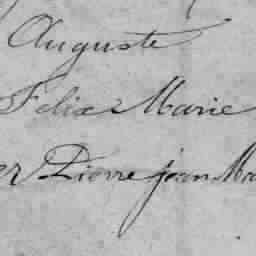 Auguste
Felix Marie
er Pierre jean Ma